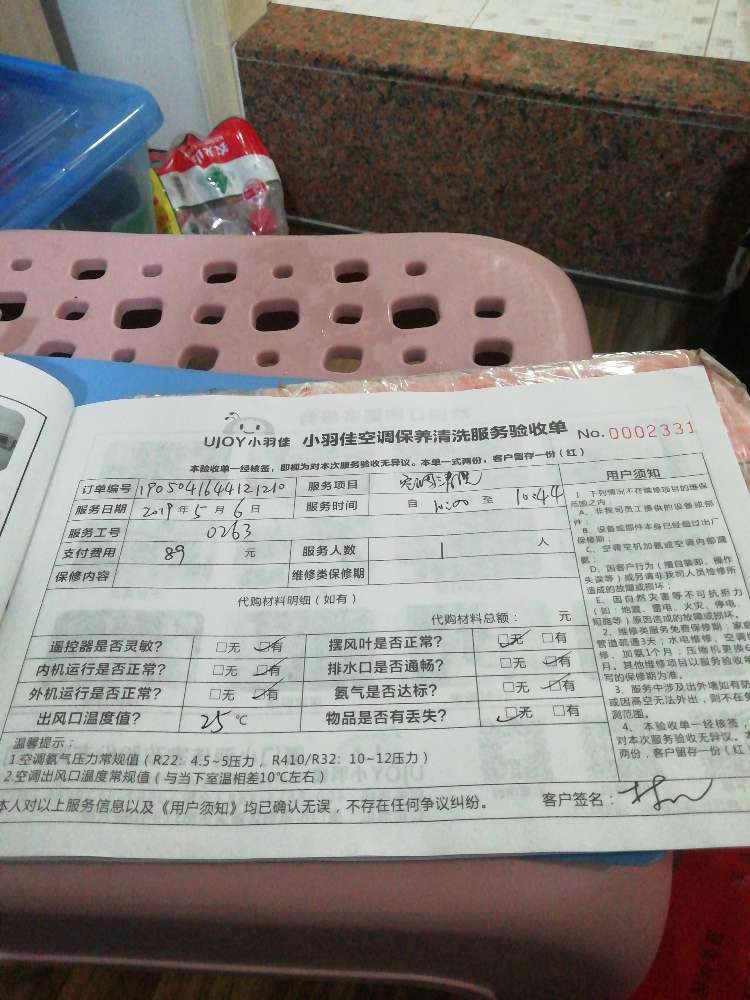 UJOY小羽佳 小羽佳空调保养清洗服务验收单 No.0002331
本验收单一经核签，即视为对本次服务验收无异议。本单一式两份，客户留存一份（红）
订单编号 1905041644121210 服务项目 空调清洗
服务日期 2019年5月6日 服务时间 自 10:00 至 10:44
服务工号 0263
支付费用 89 元 服务人数 1 人
保修内容 维修类保修期
代购材料明细（如有）
代购材料总额： 元
遥控器是否灵敏？ □无 □有 摆风叶是否正常？ □无 □有
内机运行是否正常？ □无 □有 排水口是否通畅？ □无 □有
外机运行是否正常？ □无 □有 氨气是否达标？ □无 □有
出风口温度值？ 25℃ 物品是否有丢失？ □无 □有
温馨提示：
1.空调氨气压力常规值（R22：4.5~5压力，R410/R32：10~12压力）
2.空调出风口温度常规值（与当下室温相差10℃左右）
本人对以上服务信息以及《用户须知》均已确认无误，不存在任何争议纠纷。 客户签名：
用户须知
1、下列情况不在维修项目的维保
范围之内
A、非我司员工提供的设备或部
件；
B、设备或部件本身已经超过出厂
保修期；
C、空调空机加氨或空调内部漏
氨；
D、因客户行为（擅自装卸、操作
失误等）或另请非我司人员检修所
造成的故障或损坏；
E、因自然灾害等不可抗拒力
（如：地震、雷电、火灾、停电、
短路等）原因造成的故障或损坏。
2、维修类服务免费保修期：家庭
管道疏通3天；水电维修、空调
修、加氨1个月；压缩机更换
月。其他维修项目以服务验收
写的保修期为准。
3、服务中涉及出外墙如有防
或因高空无法外出，则不在
测范围。
4、本验收单一经核签，
对本次服务验收无异议。本
两份，客户留存一份（红